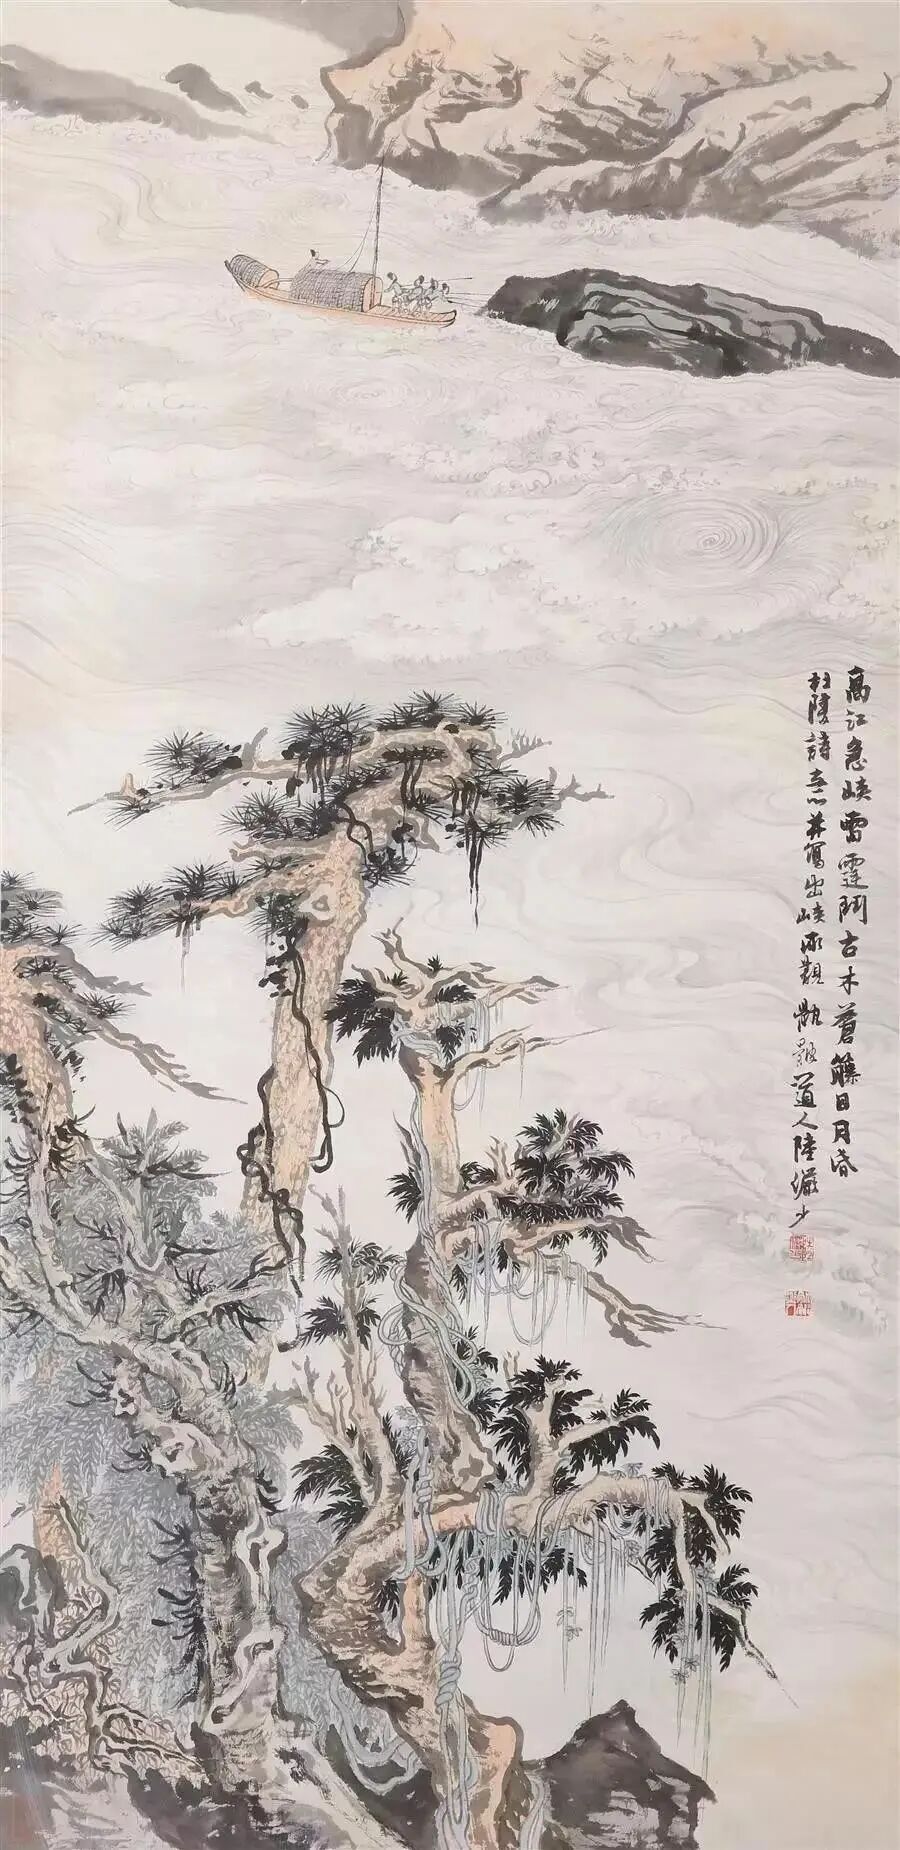 高江急峡雷霆鬥古木蒼藤日月昏
杜陵詩意並寫出峡所觀 甔䉤道人陸儼少